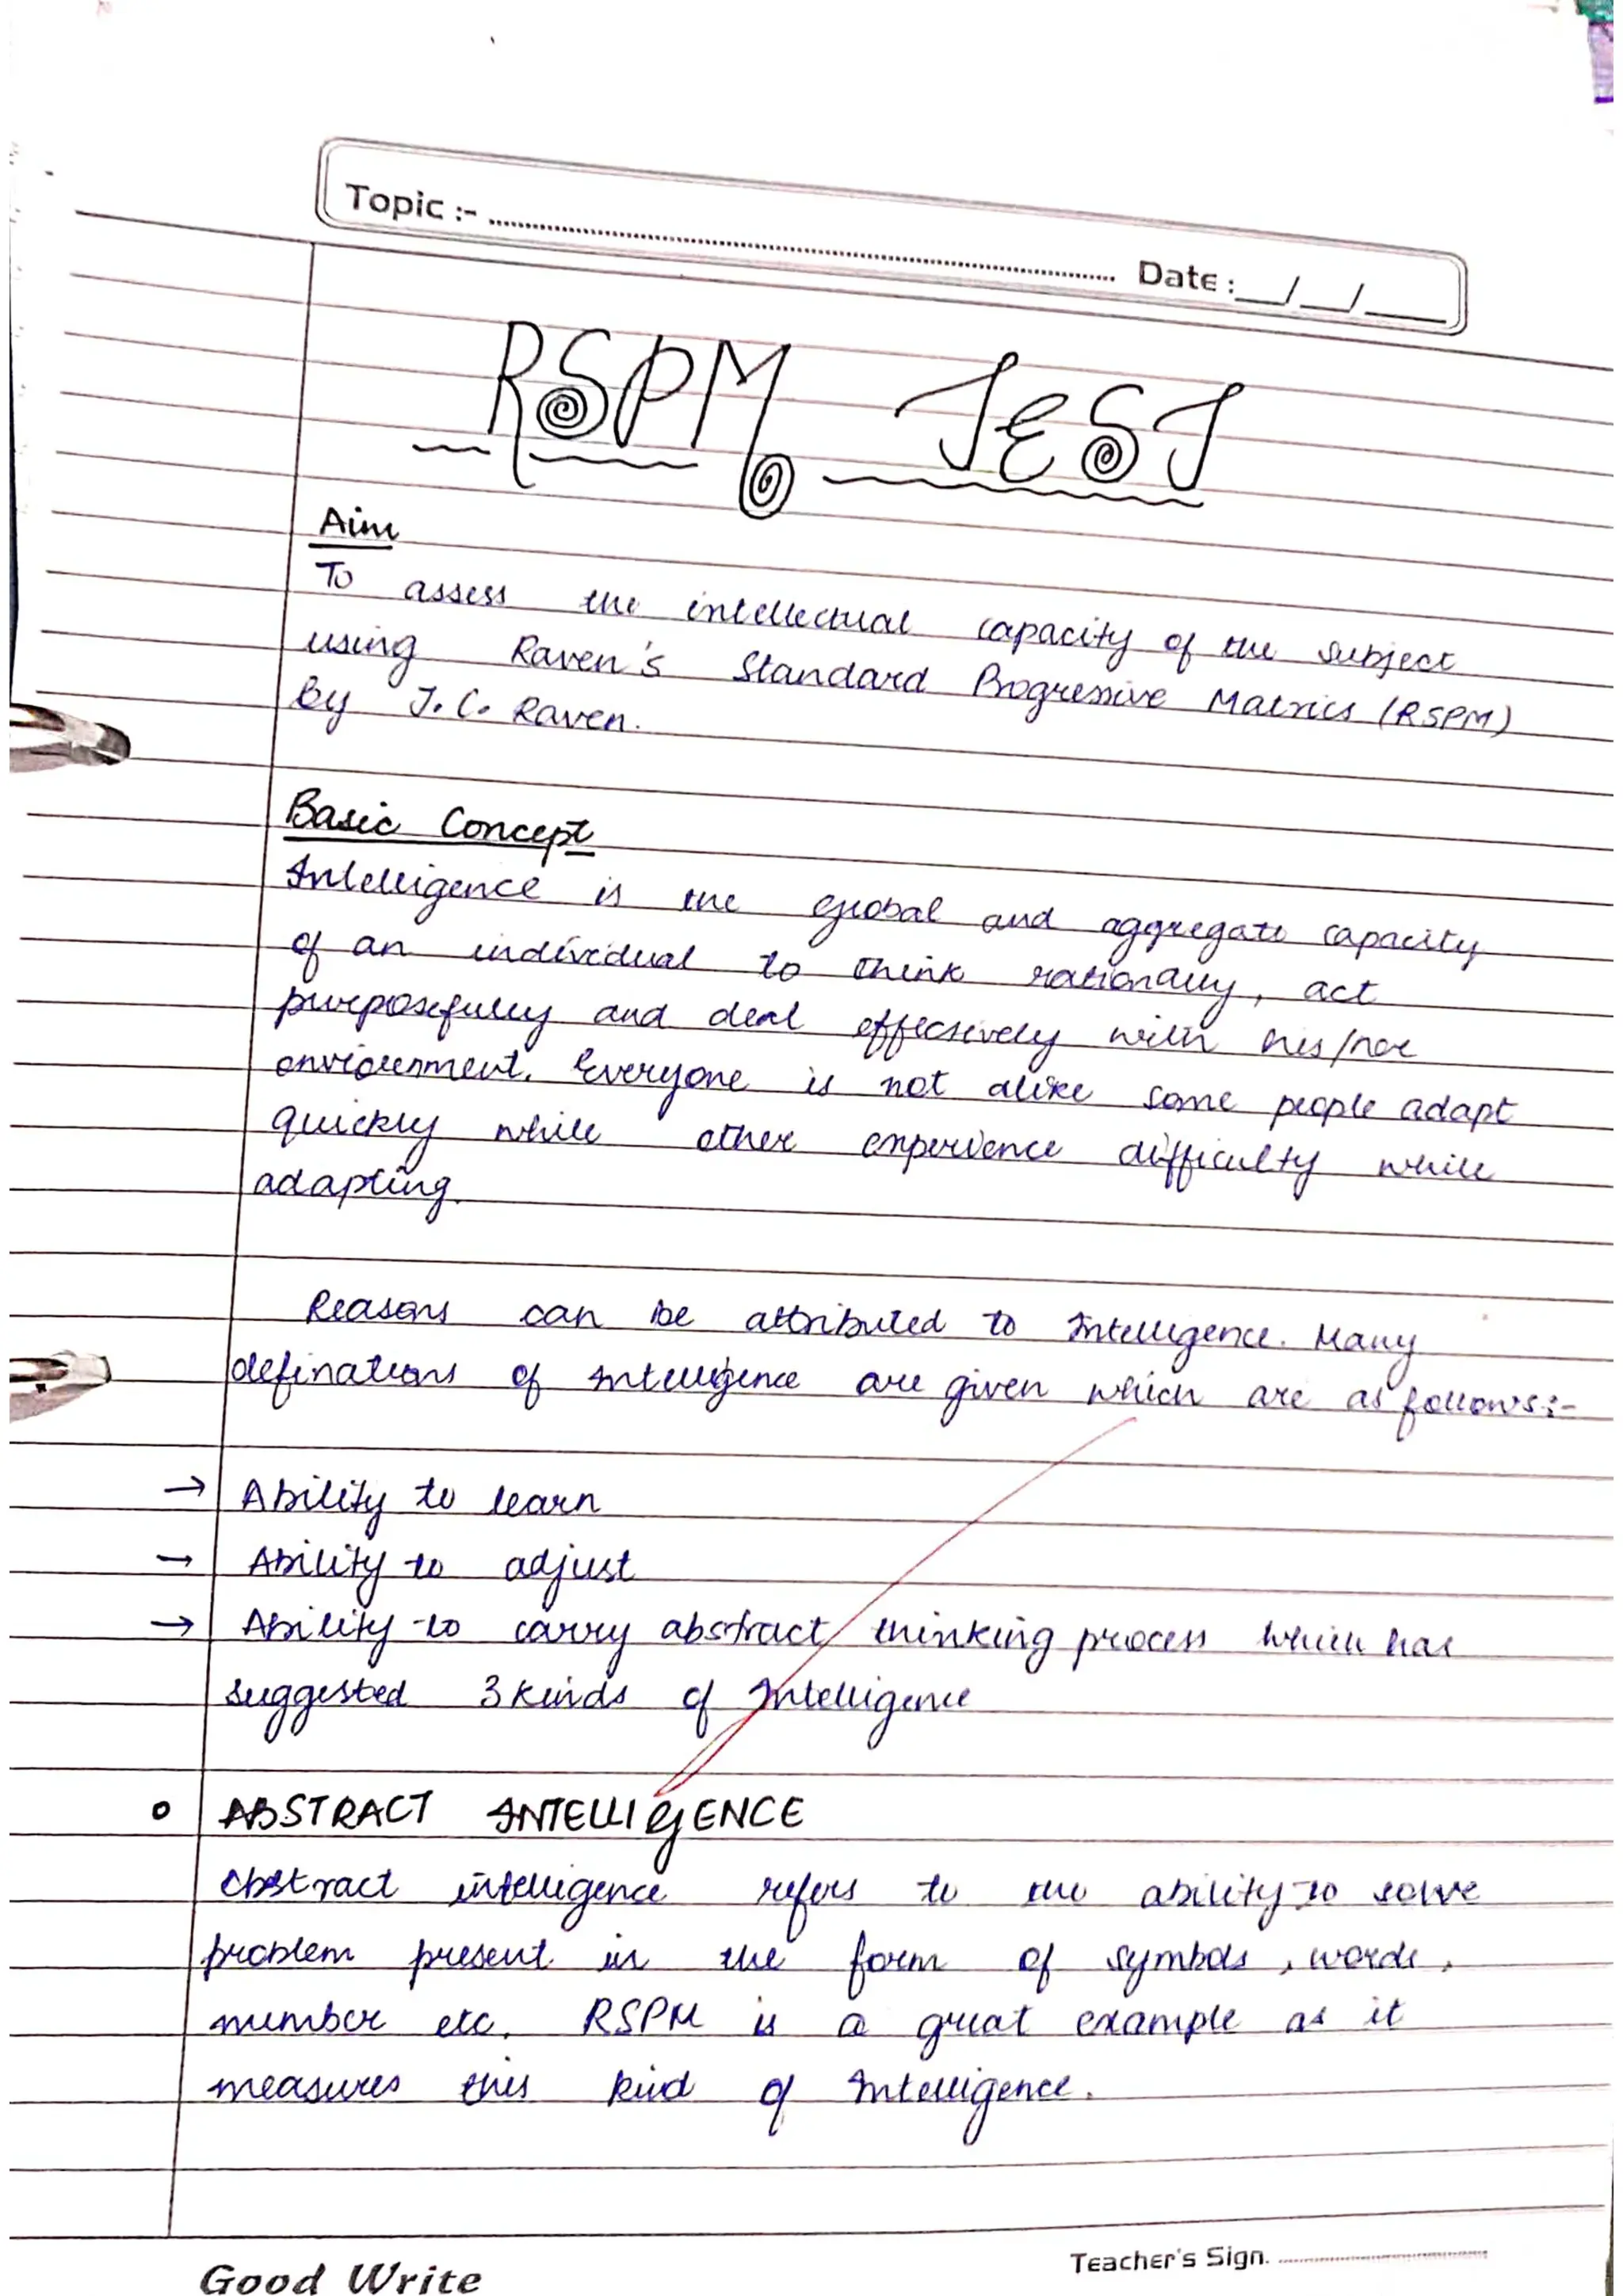 Topic :- ........ Date : __/__/___
RSPM TEST
Aim
To assess the intellectual capacity of the subject
using Raven's Standard Progressive Matrics (RSPM)
by J. C. Raven.
Basic Concept
Intelligence is the global and aggregate capacity
of an individual to think rationally, act
purposefully and deal effectively with his/her
enviornment. Everyone is not alike some people adapt
quickly while other experience difficulty while
adapting.
Reasons can be attributed to Intelligence. Many
definations of Intelligence are given which are as follows:-
→ Ability to learn
→ Ability to adjust
→ Ability to carry abstract thinking process which has
suggested 3 kinds of Intelligence
o ABSTRACT INTELLIGENCE
Abstract intelligence refers to the ability to solve
problem present in the form of symbols, words,
number etc. RSPM is a great example as it
measures this kind of Intelligence.
Teacher's Sign. ........
Good Write